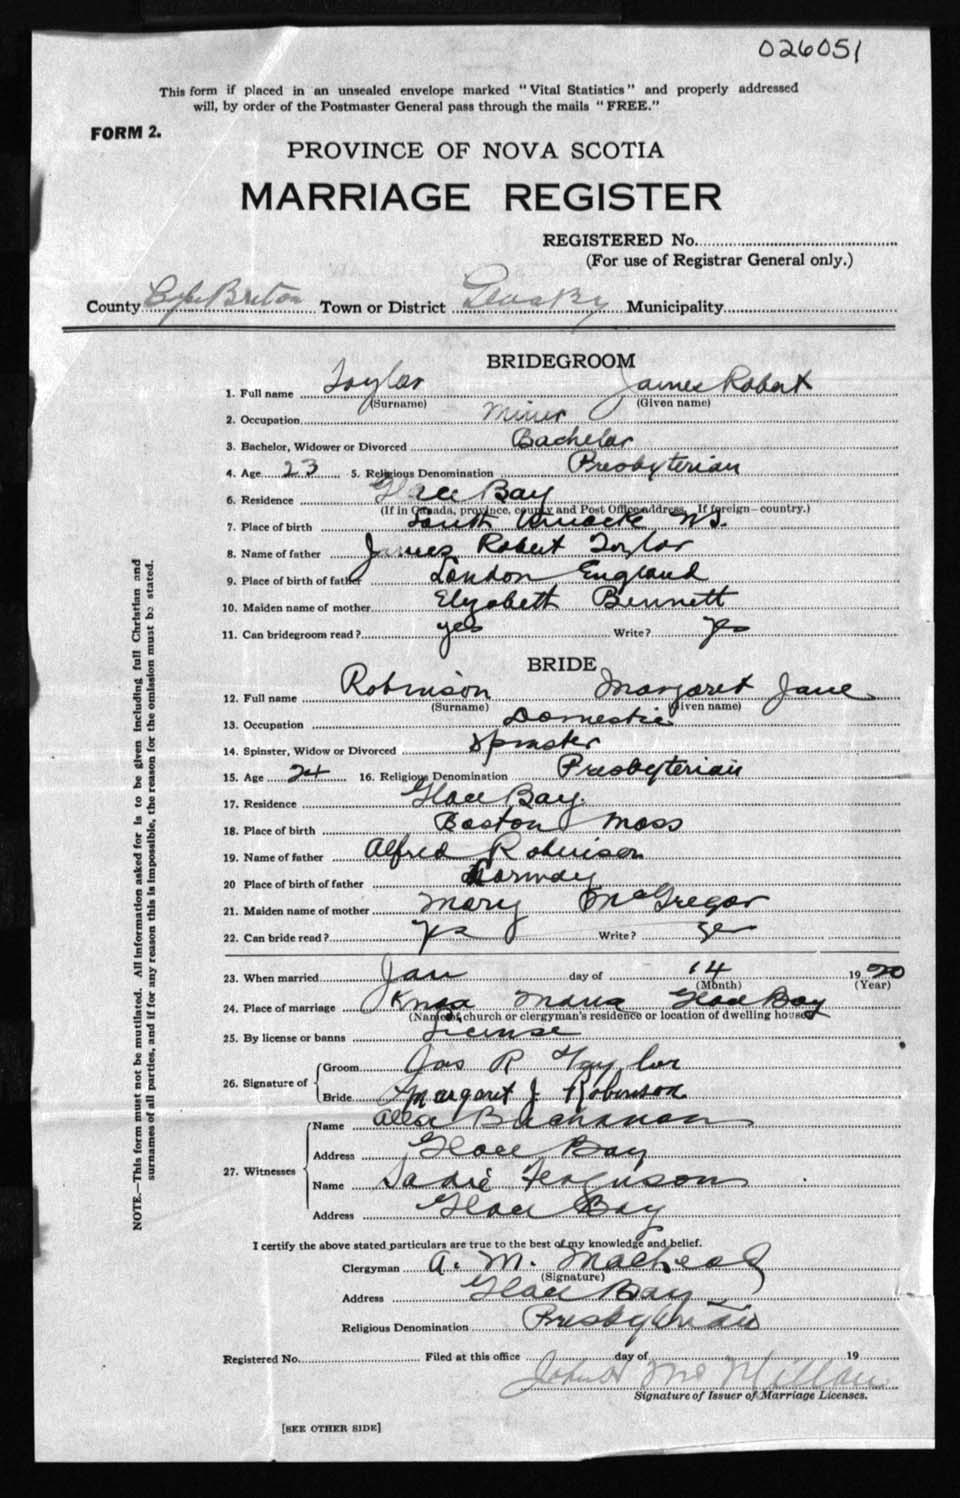 026051
This form if placed in an unsealed envelope marked "Vital Statistics" and properly addressed
will, by order of the Postmaster General pass through the mails "FREE."
FORM 2.
PROVINCE OF NOVA SCOTIA
MARRIAGE REGISTER
REGISTERED No.
(For use of Registrar General only.)
County Cape Breton Town or District Glace Bay Municipality
BRIDEGROOM
1. Full name Taylor James Robert
(Surname) (Given name)
2. Occupation Miner
3. Bachelor, Widower or Divorced Bachelor
4. Age 23 5. Religious Denomination Presbyterian
6. Residence Glace Bay
(If in Canada, province, county and Post Office address. If foreign—country.)
7. Place of birth South NS.
8. Name of father James Robert Taylor
9. Place of birth of father London England
10. Maiden name of mother Elizabeth Bennett
11. Can bridegroom read? yes Write? yes
BRIDE
12. Full name Robinson Margaret Jane
(Surname) (Given name)
13. Occupation Domestic
14. Spinster, Widow or Divorced Spinster
15. Age 24 16. Religious Denomination Presbyterian
17. Residence Glace Bay.
18. Place of birth Boston Mass
19. Name of father Alfred Robinson
20 Place of birth of father Norway
21. Maiden name of mother Mary McGregor
22. Can bride read? yes Write? yes
23. When married Jan day of 14 1920
(Month) (Year)
24. Place of marriage Knox Manse Glace Bay
(Name of church or clergyman's residence or location of dwelling house)
25. By license or banns License
26. Signature of
Groom Jas R Taylor
Bride Margaret J. Robinson
27. Witnesses
Name Buchanan
Address Glace Bay
Name Sadie Ferguson
Address Glace Bay
I certify the above stated particulars are true to the best of my knowledge and belief.
Clergyman A. M. MacLeod
(Signature)
Address Glace Bay
Religious Denomination Presbyterian
Registered No. Filed at this office day of 19
McMillan
Signature of Issuer of Marriage Licenses.
[SEE OTHER SIDE]
NOTE.—This form must not be mutilated. All information asked for is to be given including full Christian and
surnames of all parties, and if for any reason this is impossible, the reason for the omission must be stated.